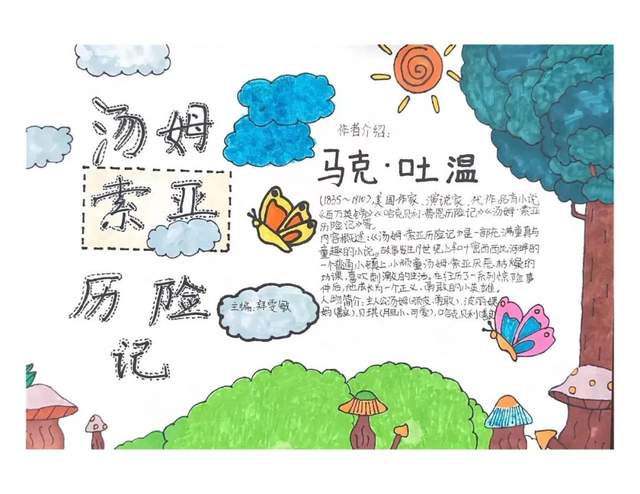 汤姆
索亚
历险
记
主编:
作者介绍:
马克·吐温
(1835～1910)美国作家、演说家,代作品有小说
《百万英镑》《哈克贝利·费恩历险记》《汤姆·索亚
历险记》等。
内容概述:《汤姆·索亚历险记》是一部充满童真与
童趣的小说。故事发生19世纪上半叶密西西比河畔的
一个普通小镇上,小顽童汤姆·索亚厌恶枯燥的
功课,喜欢刺激的生活。在经历了一系列惊险事
件后,他成长为一个正义、勇敢的小英雄。
人物简介:主人公汤姆(顽皮、勇敢)、波莉姨
妈 贝琪(胆小、可爱)、哈克贝利